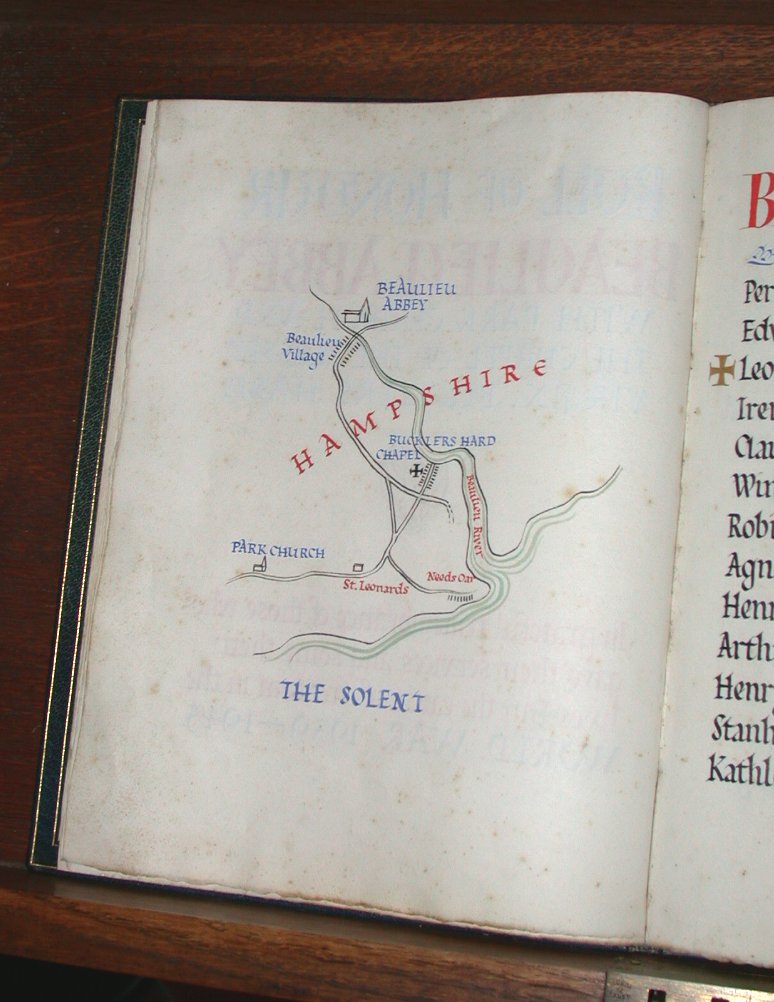 BEAULIEU
ABBEY
Beaulieu
Village
HAMPSHIRE
BUCKLERS HARD
CHAPEL
Beaulieu River
PARK CHURCH
St. Leonards
Needs Oar
THE SOLENT
B
Per
Edw
Leo
Iren
Clau
Win
Robi
Agn
Henr
Arth
Henr
Stanl
Kathl